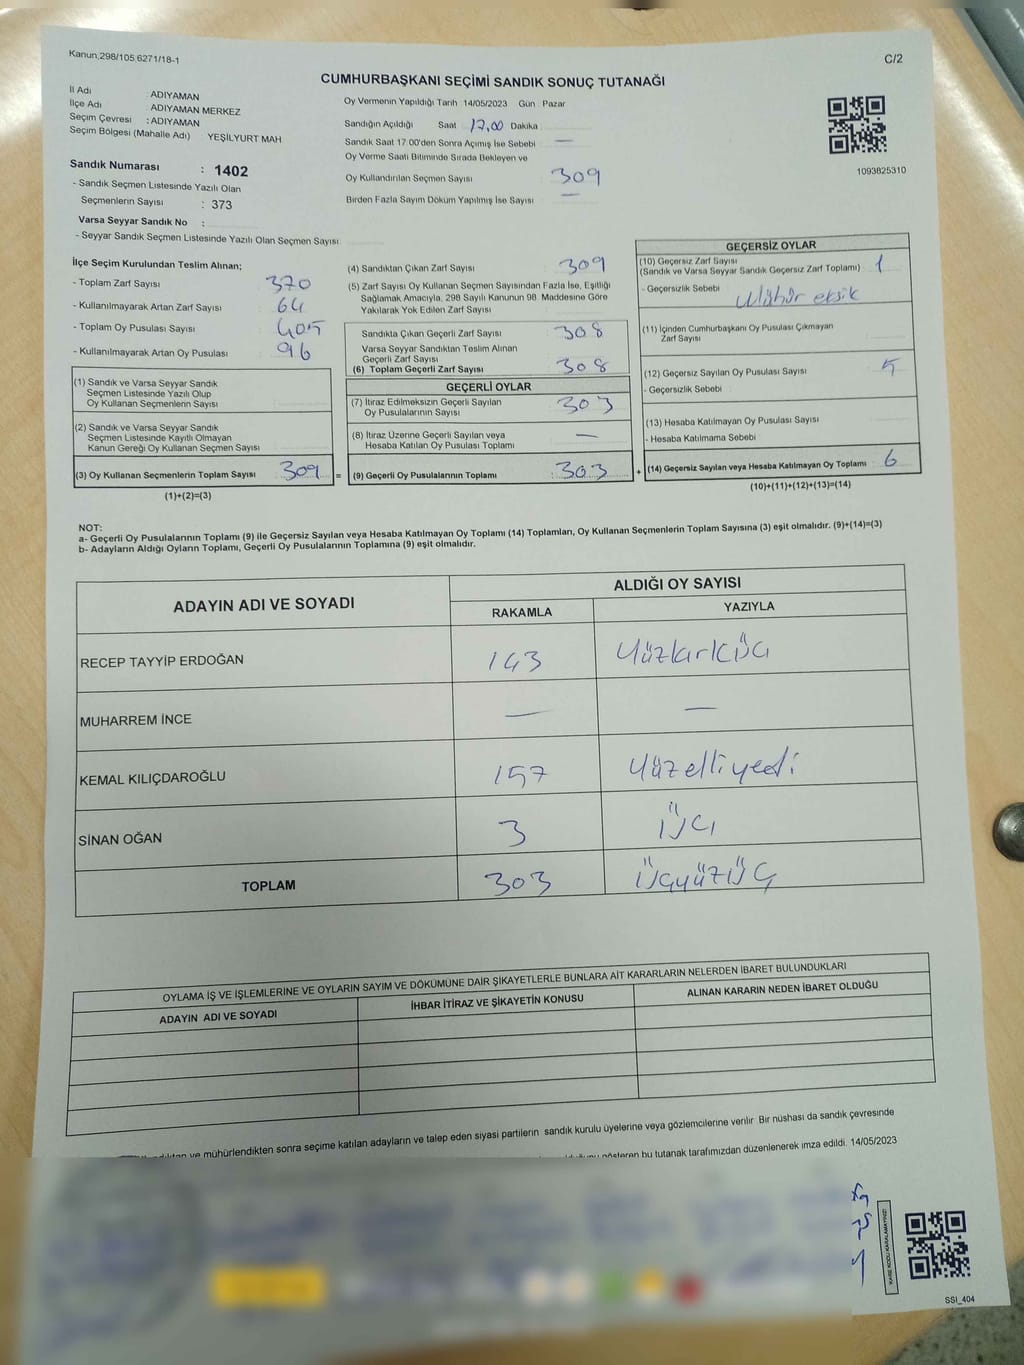 Kanun.298/105.6271/18-1
C/2
CUMHURBAŞKANI SEÇİMİ SANDIK SONUÇ TUTANAĞI
İl Adı : ADIYAMAN
İlçe Adı : ADIYAMAN MERKEZ
Seçim Çevresi : ADIYAMAN
Seçim Bölgesi (Mahalle Adı) YEŞİLYURT MAH
Sandık Numarası : 1402
- Sandık Seçmen Listesinde Yazılı Olan
Seçmenlerin Sayısı : 373
Varsa Seyyar Sandık No :
- Seyyar Sandık Seçmen Listesinde Yazılı Olan Seçmen Sayısı
Oy Vermenin Yapıldığı Tarih 14/05/2023 Gün : Pazar
Sandığın Açıldığı Saat 17,00 Dakika
Sandık Saat 17.00'den Sonra Açımış İse Sebebi —
Oy Verme Saati Bitiminde Sırada Bekleyen ve
Oy Kullandırılan Seçmen Sayısı 309
Birden Fazla Sayım Döküm Yapılmış İse Sayısı —
1093825310
İlçe Seçim Kurulundan Teslim Alınan;
- Toplam Zarf Sayısı 370
- Kullanılmayarak Artan Zarf Sayısı 64
- Toplam Oy Pusulası Sayısı 405
- Kullanılmayarak Artan Oy Pusulası 96
(1) Sandık ve Varsa Seyyar Sandık
Seçmen Listesinde Yazılı Olup
Oy Kullanan Seçmenlerin Sayısı
(2) Sandık ve Varsa Seyyar Sandık
Seçmen Listesinde Kayıtlı Olmayan
Kanun Gereği Oy Kullanan Seçmen Sayısı
(3) Oy Kullanan Seçmenlerin Toplam Sayısı 309 =
(1)+(2)=(3)
(4) Sandıktan Çıkan Zarf Sayısı 309
(5) Zarf Sayısı Oy Kullanan Seçmen Sayısından Fazla İse, Eşitliği
Sağlamak Amacıyla, 298 Sayılı Kanunun 98. Maddesine Göre
Yakılarak Yok Edilen Zarf Sayısı
Sandıkta Çıkan Geçerli Zarf Sayısı 308
Varsa Seyyar Sandıktan Teslim Alınan
Geçerli Zarf Sayısı
(6) Toplam Geçerli Zarf Sayısı 308
GEÇERLİ OYLAR
(7) İtiraz Edilmeksizin Geçerli Sayılan
Oy Pusulalarının Sayısı 303
(8) İtiraz Üzerine Geçerli Sayılan veya
Hesaba Katılan Oy Pusulası Toplamı —
(9) Geçerli Oy Pusulalarının Toplamı 303 +
GEÇERSİZ OYLAR
(10) Geçersiz Zarf Sayısı
(Sandık ve Varsa Seyyar Sandık Geçersiz Zarf Toplamı) 1
- Geçersizlik Sebebi Mühür eksik
(11) İçinden Cumhurbaşkanı Oy Pusulası Çıkmayan
Zarf Sayısı
(12) Geçersiz Sayılan Oy Pusulası Sayısı 5
- Geçersizlik Sebebi
(13) Hesaba Katılmayan Oy Pusulası Sayısı
- Hesaba Katılmama Sebebi
(14) Geçersiz Sayılan veya Hesaba Katılmayan Oy Toplamı 6
(10)+(11)+(12)+(13)=(14)
NOT:
a- Geçerli Oy Pusulalarının Toplamı (9) ile Geçersiz Sayılan veya Hesaba Katılmayan Oy Toplamı (14) Toplamları, Oy Kullanan Seçmenlerin Toplam Sayısına (3) eşit olmalıdır. (9)+(14)=(3)
b- Adayların Aldığı Oyların Toplamı, Geçerli Oy Pusulalarının Toplamına (9) eşit olmalıdır.
ADAYIN ADI VE SOYADI
ALDIĞI OY SAYISI
RAKAMLA YAZIYLA
RECEP TAYYİP ERDOĞAN 143
MUHARREM İNCE — —
KEMAL KILIÇDAROĞLU 157 Yüzelliyedi
SİNAN OĞAN 3 Üç
TOPLAM 303 Üçyüzüç
OYLAMA İŞ VE İŞLEMLERİNE VE OYLARIN SAYIM VE DÖKÜMÜNE DAİR ŞİKAYETLERLE BUNLARA AİT KARARLARIN NELERDEN İBARET BULUNDUKLARI
ADAYIN ADI VE SOYADI İHBAR İTİRAZ VE ŞİKAYETİN KONUSU ALINAN KARARIN NEDEN İBARET OLDUĞU
ve mühürlendikten sonra seçime katılan adayların ve talep eden siyasi partilerin sandık kurulu üyelerine veya gözlemcilerine verilir Bir nüshası da sandık çevresinde
gösteren bu tutanak tarafımızdan düzenlenerek imza edildi. 14/05/2023
KARE KODU KARALAMAYINIZ!
SSI_404